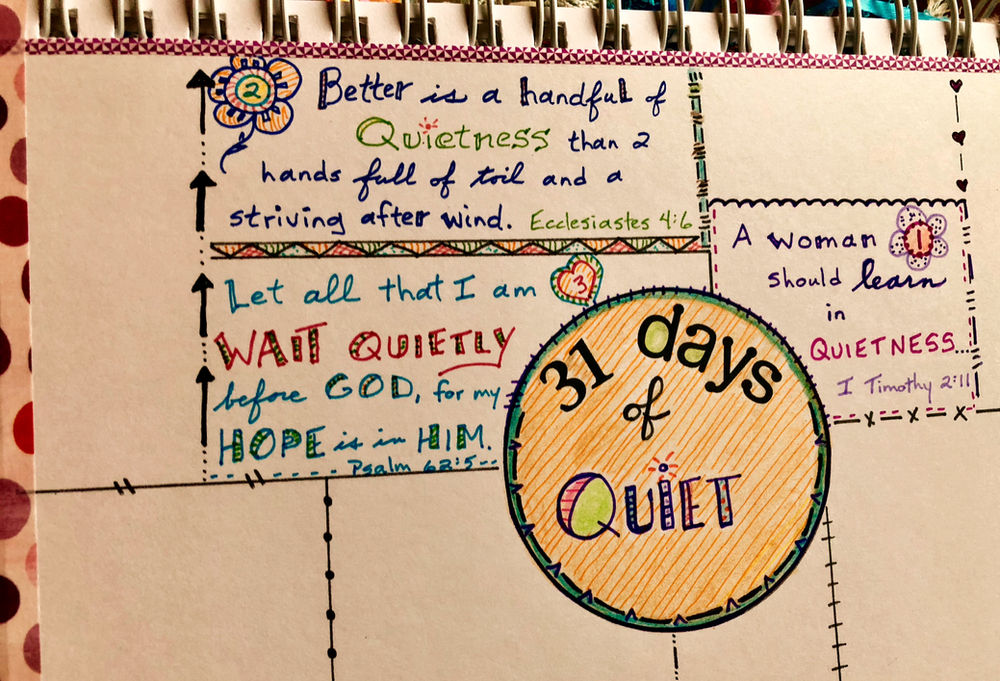 2
Better is a handful of
Quietness than 2
hands full of toil and a
striving after wind. Ecclesiastes 4:6
Let all that I am 3
WAIT QUIETLY
before GOD, for my
HOPE is in HIM.
Psalm 62:5
31 days
of
QUIET
A woman 1
should learn
in
QUIETNESS...
I Timothy 2:11